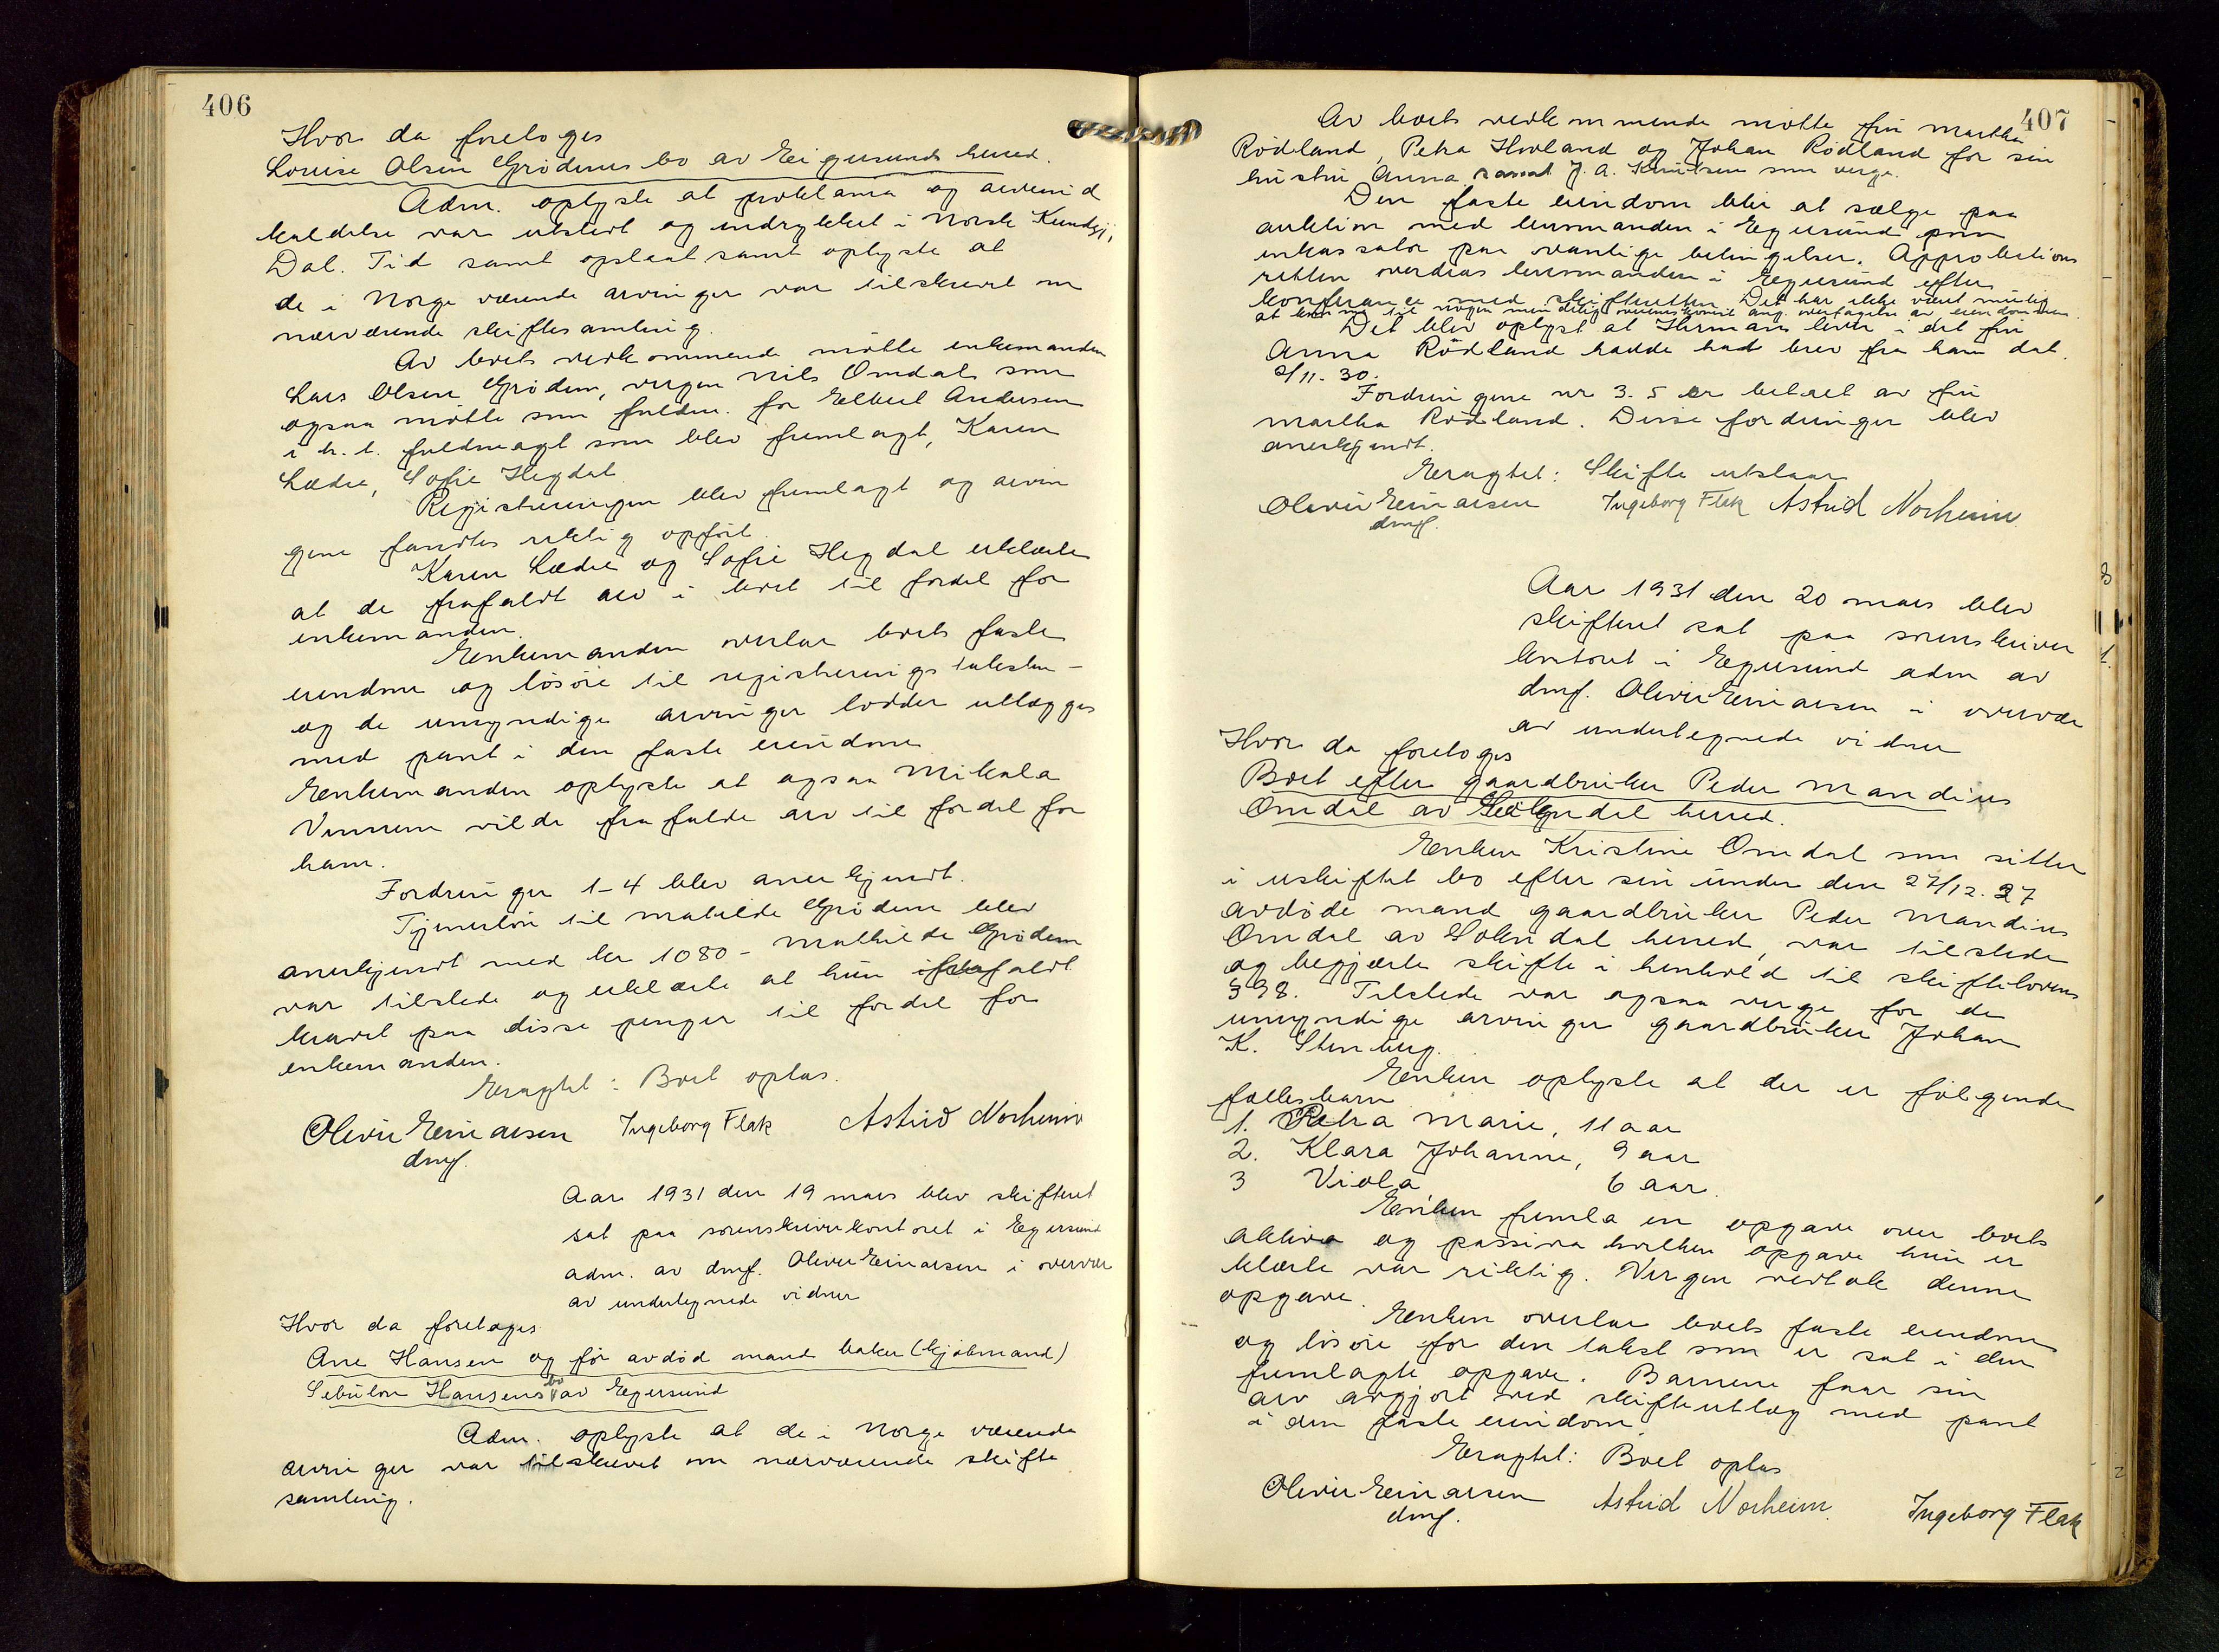 406
Hvor da foretoges
Louise Olsen Grødems bo av Eigersunds herred.
Adm. oplyste at proklama og arveind
kaldelse var utstedt og indrykket i Norsk Kundgj.,
Dal. Tid samt opslaat samt oplyste at
de i Norge værende arvinger var tilskrevet om
nærværende skiftesamling.
Av boets vedkommende møtte enkemanden
Lars Olsen Grødem, vergen Nils Omdal som
ogsaa møtte som fuldm. for Elbert Andersen
i h. t. fuldmagt som blev fremlagt, Karen
Lædre, Sofie Hegdal.
Registreringen blev fremlagt og arvin
gene fandtes riktig opført.
Karen Lædre og Sofie Hegdal erklærte
at de frafaldt arv i boet til fordel for
enkemanden.
Enkemanden overtar boets faste
eiendom og løsøre til registrerings taksten -
og de umyndige arvinger lodder utlægges
med pant i den faste eiendom
Enkemanden oplyste at ogsaa Mikala
Vinnem vilde frafalde arv til fordel for
ham.
Fordringer 1-4 blev anerkjendt.
Tjenerløn til Mathilde Grødem blev
anerkjendt med kr 1080 - Mathilde Grødem
var tilstede og erklærte at hun frafaldt
kravet paa disse penger til fordel for
enkemanden.
Eragtet: Boet optas.
Oliver Einarsen Ingeborg Flak Astrid Norheim
dmf.
Aar 1931 den 19 mars blev skifteret
sat paa sorenskriverkontoret i Egersund
adm. av dmf. Oliver Einarsen i overvær
av undertegnede vidner
Hvor da foretoges
Ane Hansen og før avdød mand baker (kjøbmand)
Sebulon Hansens bo av Egersund
Adm. oplyste at de i Norge værende
arvinger var tilskrevet om nærværende skifte
samling.
407
Av boets vedkommende møtte fru Martha
Rødland, Petra Hovland og Johan Rødland for sin
hustru Anna samt J. A. Knutsen som verge.
Den faste eiendom blir at sælge paa
auktion med lensmanden i Egersund som
inkassator paa vanlige betingelser. Approbations
retten overdras lensmanden i Egersund efter
konferance med skifteretten. Det har ikke været mulig
at komme til nogen mindelig overenskomst ang. overtagelse av eiendommen.
Det blev oplyst at Herman lever i det fru
Anna Rødland hadde hat brev fra ham dat.
2/11. 30.
Fordringene nr 3. 5 er betalt av fru
Martha Rødland. Disse fordringer blev
anerkjendt.
Eragtet: Skifte utstaar
Oliver Einarsen Ingeborg Flak Astrid Norheim
dmf.
Aar 1931 den 20 mars blev
skifteret sat paa sorenskriver
kontoret i Egersund adm av
dmf. Oliver Einarsen i overvær
av undertegnede vidner
Hvor da foretoges
Boet efter gaardbruker Peder Mandius
Omdal av Sokndal herred.
Enken Kristine Omdal som sitter
i uskiftet bo efter sin under den 27/12. 27
avdøde mand gaardbruker Peder Mandius
Omdal av Sokndal herred, var tilstede
og begjærte skifte i henhold til skiftelovens
§98. Tilstede var ogsaa verge for de
umyndige arvinger gaardbruker Johan
K. Stenberg.
Enken oplyste at der er følgende
fællesbarn
1. Petra Marie, 11 aar
2. Klara Johanne, 9 aar
3 Viola 6 aar.
Enken fremla en opgave over boets
aktiva og passiva hvilken opgave hun er
klærte var riktig. Vergen vedtok denne
opgave.
Enken overtar boets faste eiendom
og løsøre for den takst som er sat i den
fremlagte opgave. Barnene faar sin
arv avgjort ved skifteutlæg med pant
i den faste eiendom.
Eragtet: Boet optas
Oliver Einarsen Astrid Norheim. Ingeborg Flak
dmf.